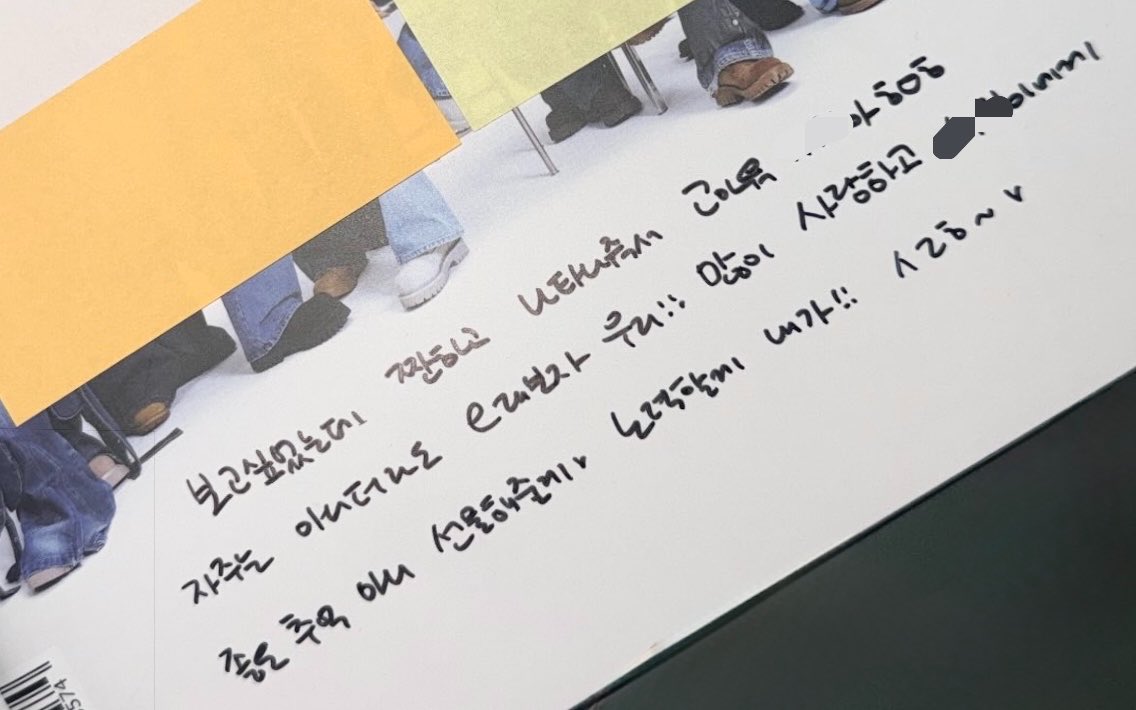 보고싶었는데 짠하고 나타나줘서 고마워 아 ㅎㅁㅎ
자주는 아니더라도 오래보자 우리!! 많이 사랑하고
좋은 추억 마니 선물해줄게 노력할게 내가!! ㅅㄹㅎ~